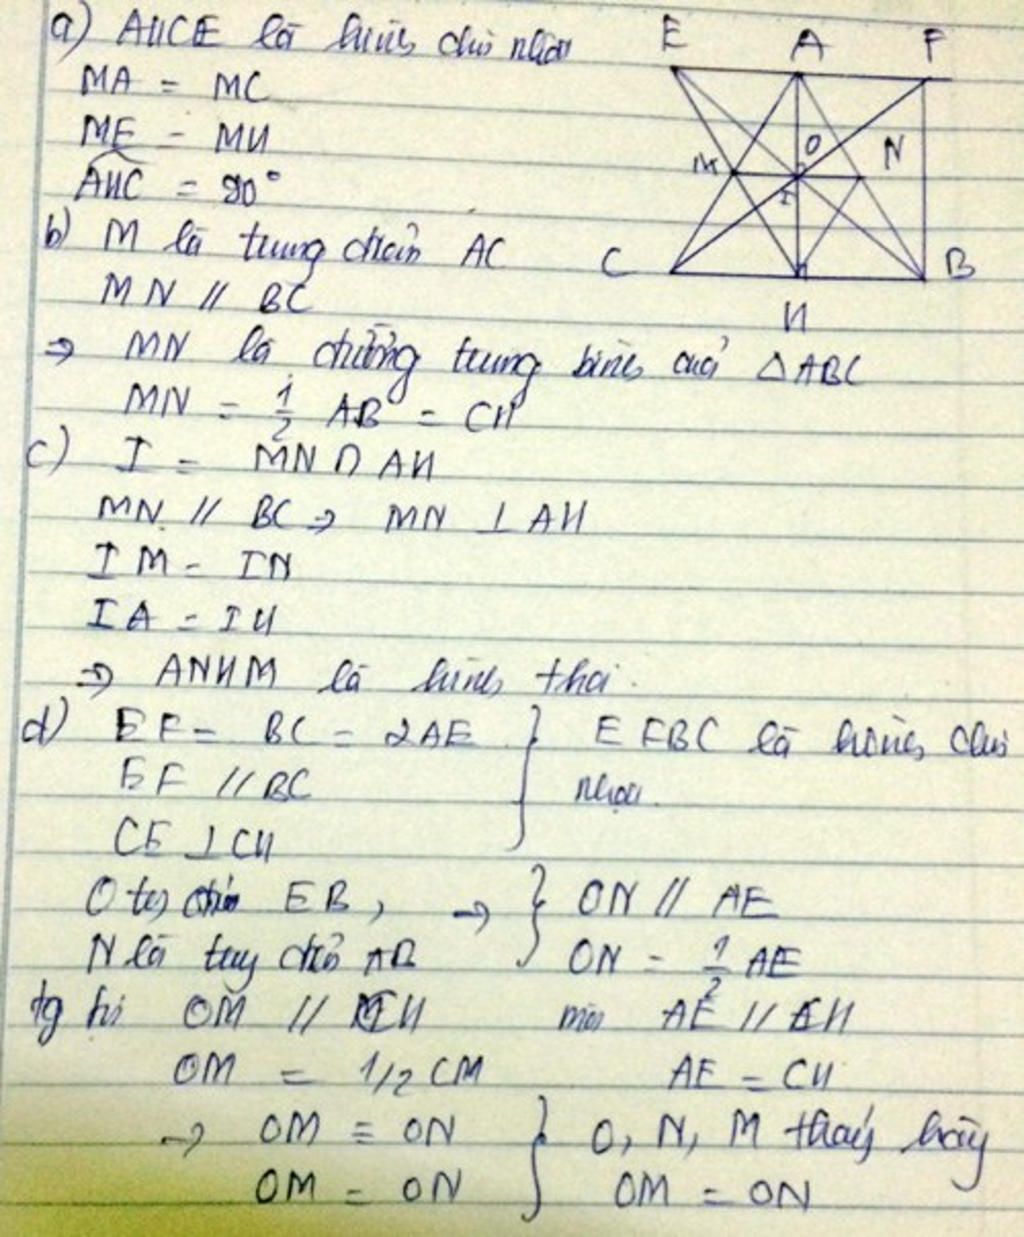 a) AHCE là hình chữ nhật
MA = MC
ME = MH
AHC = 90°
b) M là trung điểm AC
MN // BC
⇒ MN là đường trung bình của △ABC
MN = 1/2 AB = CH
c) I = MN ∩ AH
MN // BC ⇒ MN ⊥ AH
IM = IN
IA = IH
⇒ ANHM là hình thoi.
d) EF = BC = 2AE } EFBC là hình chữ
EF // BC nhật.
CE ⊥ CH
O điểm EB, → } ON // AE
N là trung điểm AB ON = 1/2 AE
OM // CH mà AE // CH
OM = 1/2 CM AE = CH
→ OM ≡ ON } O, N, M thẳng hàng
OM = ON OM = ON
E A F
M O N
I
C B
H